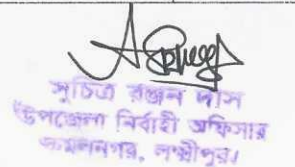 সুচিত্র রঞ্জন দাস
উপজেলা নির্বাহী অফিসার
কমলনগর, লক্ষ্মীপুর।